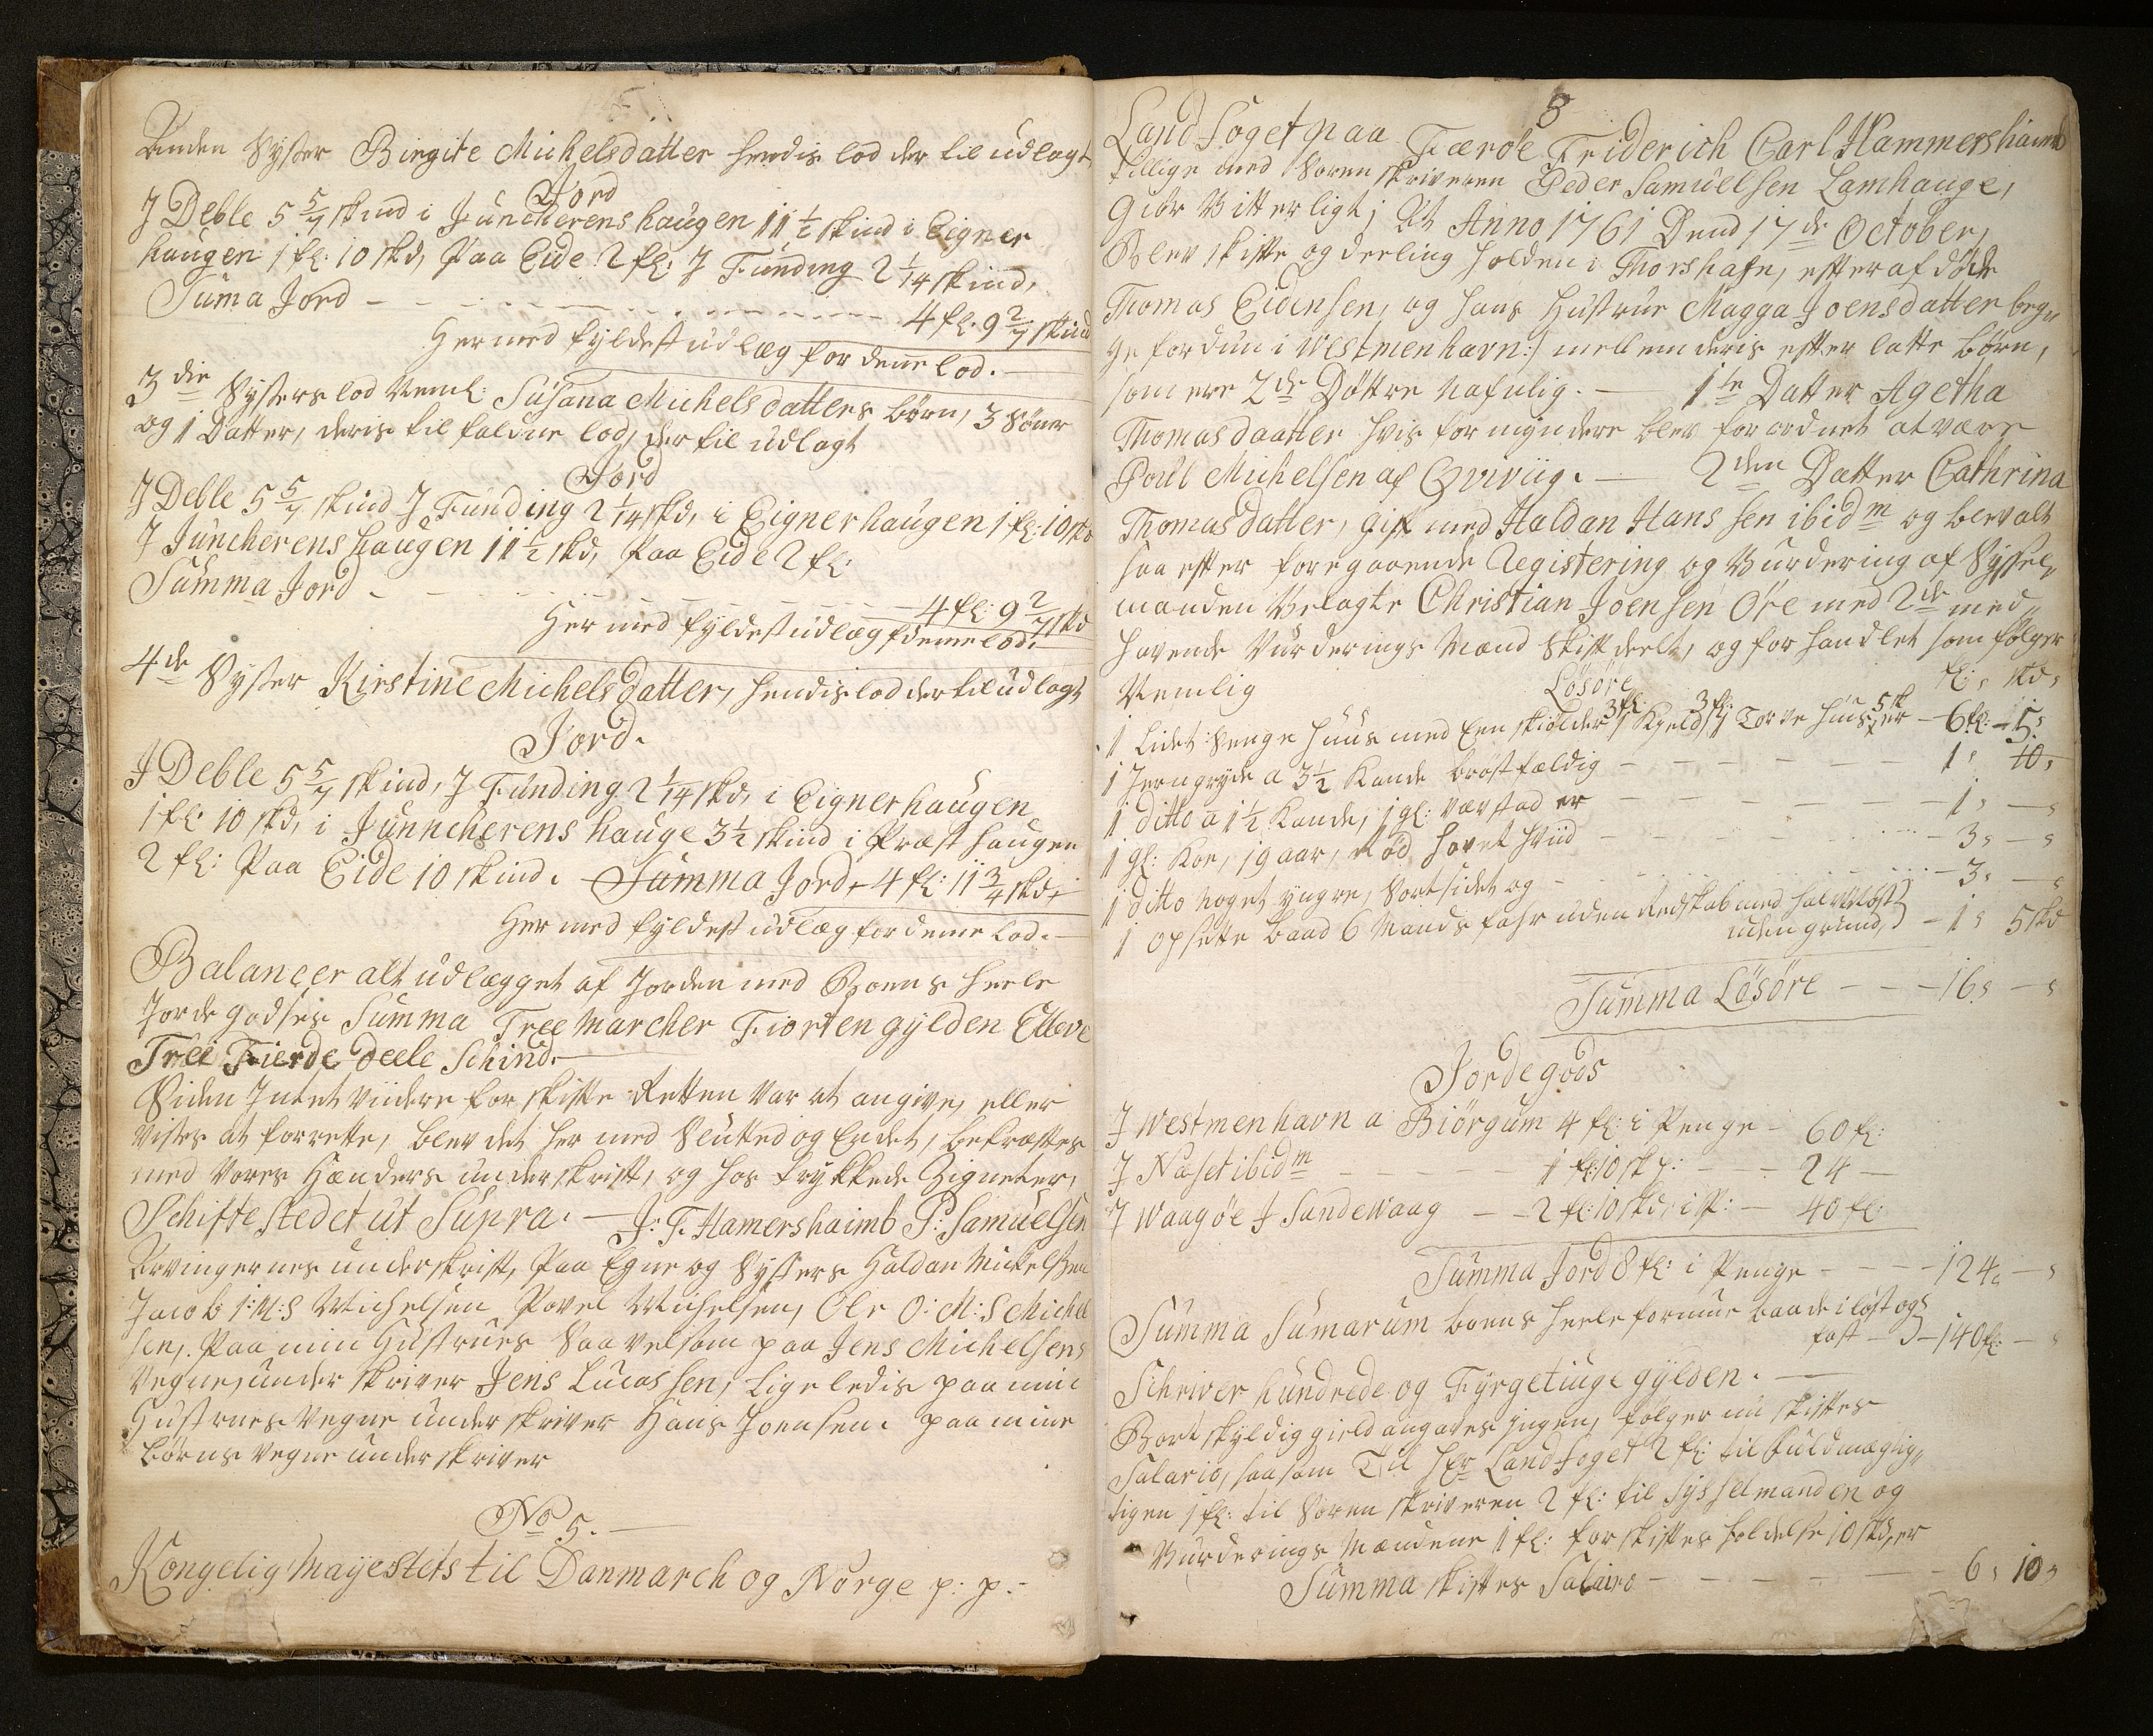 Anden Syster Birgite Michelsdatter hendis lod der til udlagt
Jord
J Deble 5 5/7 skind i Juncherens haugen 11 1/2 skind i Eigner
haugen 1 fl: 10 skd, Paa Eide 2 fl: J Funding 2 1/14 skind,
Suma Jord - - - 4 fl: 9 2/7 skind
Hermed fyldest udlæg for denne lod.
3die Systers lod Neml: Susana Michels datters børn, 3 Sønner
og 1 Datter, deris til faldne lod, der til udlagt
Jord
J Deble 5 5/7 skind J Funding 2 1/14 skd, i Eignerhaugen 1 fl: 10 skd
J Juncherens haugen 11 1/2 skd, Paa Eide 2 fl:
Summa Jord - - - 4 fl: 9 2/7 skd
Her med fyldest udlæg f denne lod.
4de Syster Kirstine Michels datter, hendis lod der til udlagt
Jord.
J Deble 5 5/7 skind, J Funding 2 1/14 skd, i Eignerhaugen
1 fl: 10 skd, i Junncherens hauge 3 1/2 skind i Præst haugen
2 fl: Paa Eide 10 skind. Summa Jord, 4 fl: 11 3/4 skd,
Her med fyldest udlæg for denne lod.
Balancer alt udlægget af Jorden med Boens heele
Jorde godses Summa Tree Marcher Fiorten gylden Elleve
Trei Fierde deele Schind.
Siden Intet viidere for skifte Retten var at angive, eller
vistes at forrette, blev det her med Sluted og Endet, bekræftes
med vores Hænders underskrift, og hos trykkede Zigneter,
Schifte stedet ut Supra. J: F. Hamershaimb P: Samuelsen
Arvingernes underskrift, Paa Egne og Systers Haldan Mickelsen
Jacob I: M: S Michelsen Povel Michelsen, Ole O: M: S Michel
sen, Paa min Hustrues Saavelsom paa Jens Michelsens
Vegne, under skriver Jens Lucassen, Ligeledis paa min
Hustrues Vegne underskriver Hans Joensen. paa mine
børns Vegne under skriver
No 5.
Kongelig Mayestets til Danmarch og Norge p: p.
8
Land Foget paa Færøe Friderich Carl Hammershaimb
tillige med Sorenskriveren Peder Samuelsen Lamhauge,
Giør Vitterligt; At Anno 1761 Dend 17de October,
Blev skifte og deeling holden i Thorshafn, efter afdøde
Thomas Eidensen, og hans Hustrue Magga Joensdatter beg¬
ge fordun i Westmenhavn :/ mellem deris efter latte børn,
som ere 2de Døttre nafnlig. 1te Datter Agetha
Thomasdaatter hvis formyndere blev for ordnet at være
Poul Michelsen af Qviviig. 2den Datter Cathrina
Thomasdatter, gift med Haldan Hanssen ibidm og blev alt
saa efter foregaaende Registering og Vurdering af Syssel¬
manden Velagte Christian Joensen Øre med 2de med¬
havende Vurderings Mænd Skift deelt, og for handlet som følger
Nemlig Løsøre fl: skd,
1 Lidet Senge Huus med Een skiolder 3 fl: 1 Kield 3 fl: 1 Torve Huus 5 sk er - 6 fl: - 5,
1 Jerngryde a 3 1/2 Kande brøstfældig - 1, 10,
1 ditto a 1 1/2 Kande, 1 gl: værstad er - 1, -
1 gl: Koe, 19 aar, rød hovet Hviid - 3, -
1 ditto noget yngre, Sortsidet og - 3, -
1 opsette baad 6 Mands fahr uden Redskab med
uden grund, - 1, 5 skd
Summa Løsøre - - - 16, -
Jordegods
J Westmenhavn a Biørgum 4 fl: i Penge - 60 fl:
J Næset ibidm - 1 fl: 10 sk - 24 -
J Waagøe J Sandewaag - - 2 fl: 10 skd, i P: - 40 fl:
Summa Jord 8 fl: i Penge - - - 124, -
Summa Sumarum boens heele formue baade i løst og
fast - 140 fl: -
Schriver hundrede og Fyrgetiuge gylden.
Bort skyldig gield angaves Ingen, følger nu skiftes
Salario, saasom Til Hr Landfoget 2 fl: til Fuldmægtig¬
tigen 1 fl: til Sorenskriveren 2 fl: til Sysselmanden og
Vurderings Mændene 1 fl: for skiftes holdelse 10 skd, er
Summa skiftes Salairo - - - 6, 10,